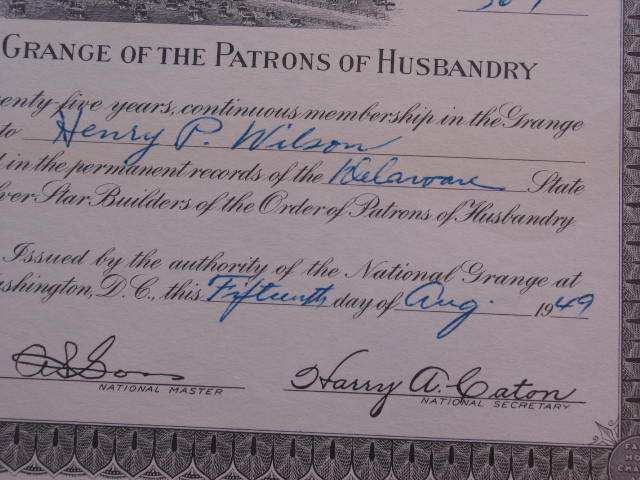 GRANGE OF THE PATRONS OF HUSBANDRY
enty-five years, continuous membership in the Grange
to Henry P. Wilson
in the permanent records of the Delaware State
ver Star Builders of the Order of Patrons of Husbandry.
Issued by the authority of the National Grange at
ashington, D.C., this Fifteenth day of Aug. 1949
A S Goss Harry A. Caton
NATIONAL MASTER NATIONAL SECRETARY